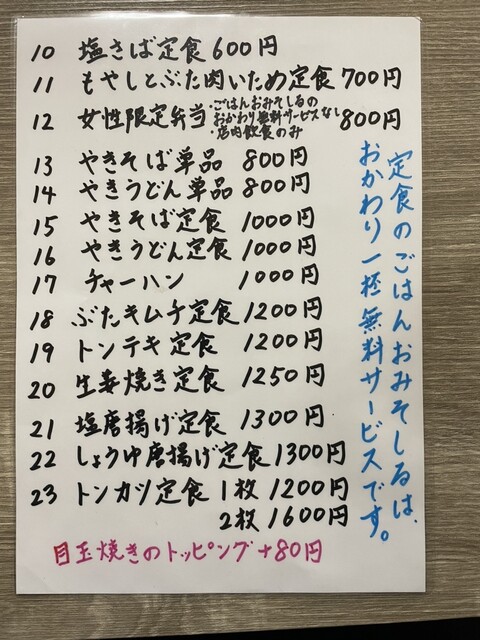 10 塩さば定食 600円
11 もやしとぶた肉いため定食 700円
12 女性限定弁当 ・ごはんおみそしるの
おかわり無料サービスなし
・店内飲食のみ 800円
13 やきそば単品 800円
14 やきうどん単品 800円
15 やきそば定食 1000円
16 やきうどん定食 1000円
17 チャーハン 1000円
18 ぶたキムチ定食 1200円
19 トンテキ定食 1200円
20 生姜焼き定食 1250円
21 塩唐揚げ定食 1300円
22 しょうゆ唐揚げ定食 1300円
23 トンカツ定食 1枚 1200円
2枚 1600円
目玉焼きのトッピング+80円
定食のごはんおみそしるは、
おかわり一杯無料サービスです。